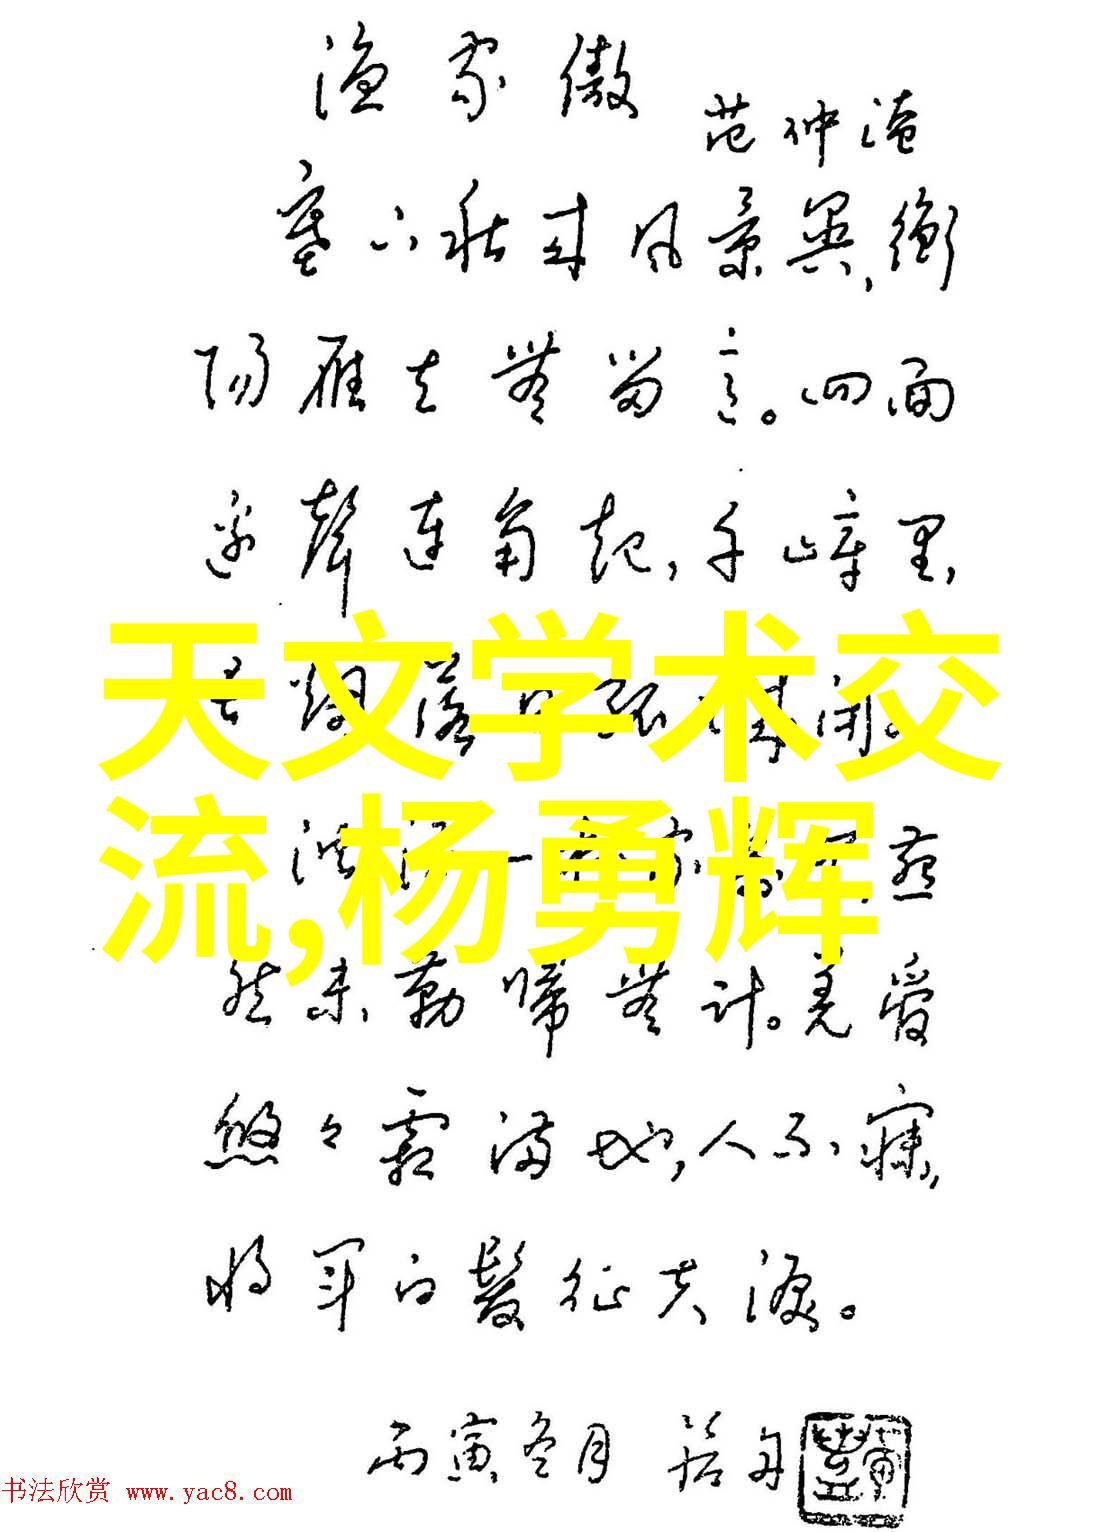 渔家傲
范仲淹
塞下秋来风景异,衡
阳雁去無留意。四面
边聲连角起,千嶂里,
天文学术交
長烟落日孤城闭。
流,杨勇辉
浊酒一杯家万里,燕
然未勒歸無计。羌管
悠々霜满地,人不寐,
将军白髮征夫淚。
丙寅冬月
书法欣赏 www.yac8.com